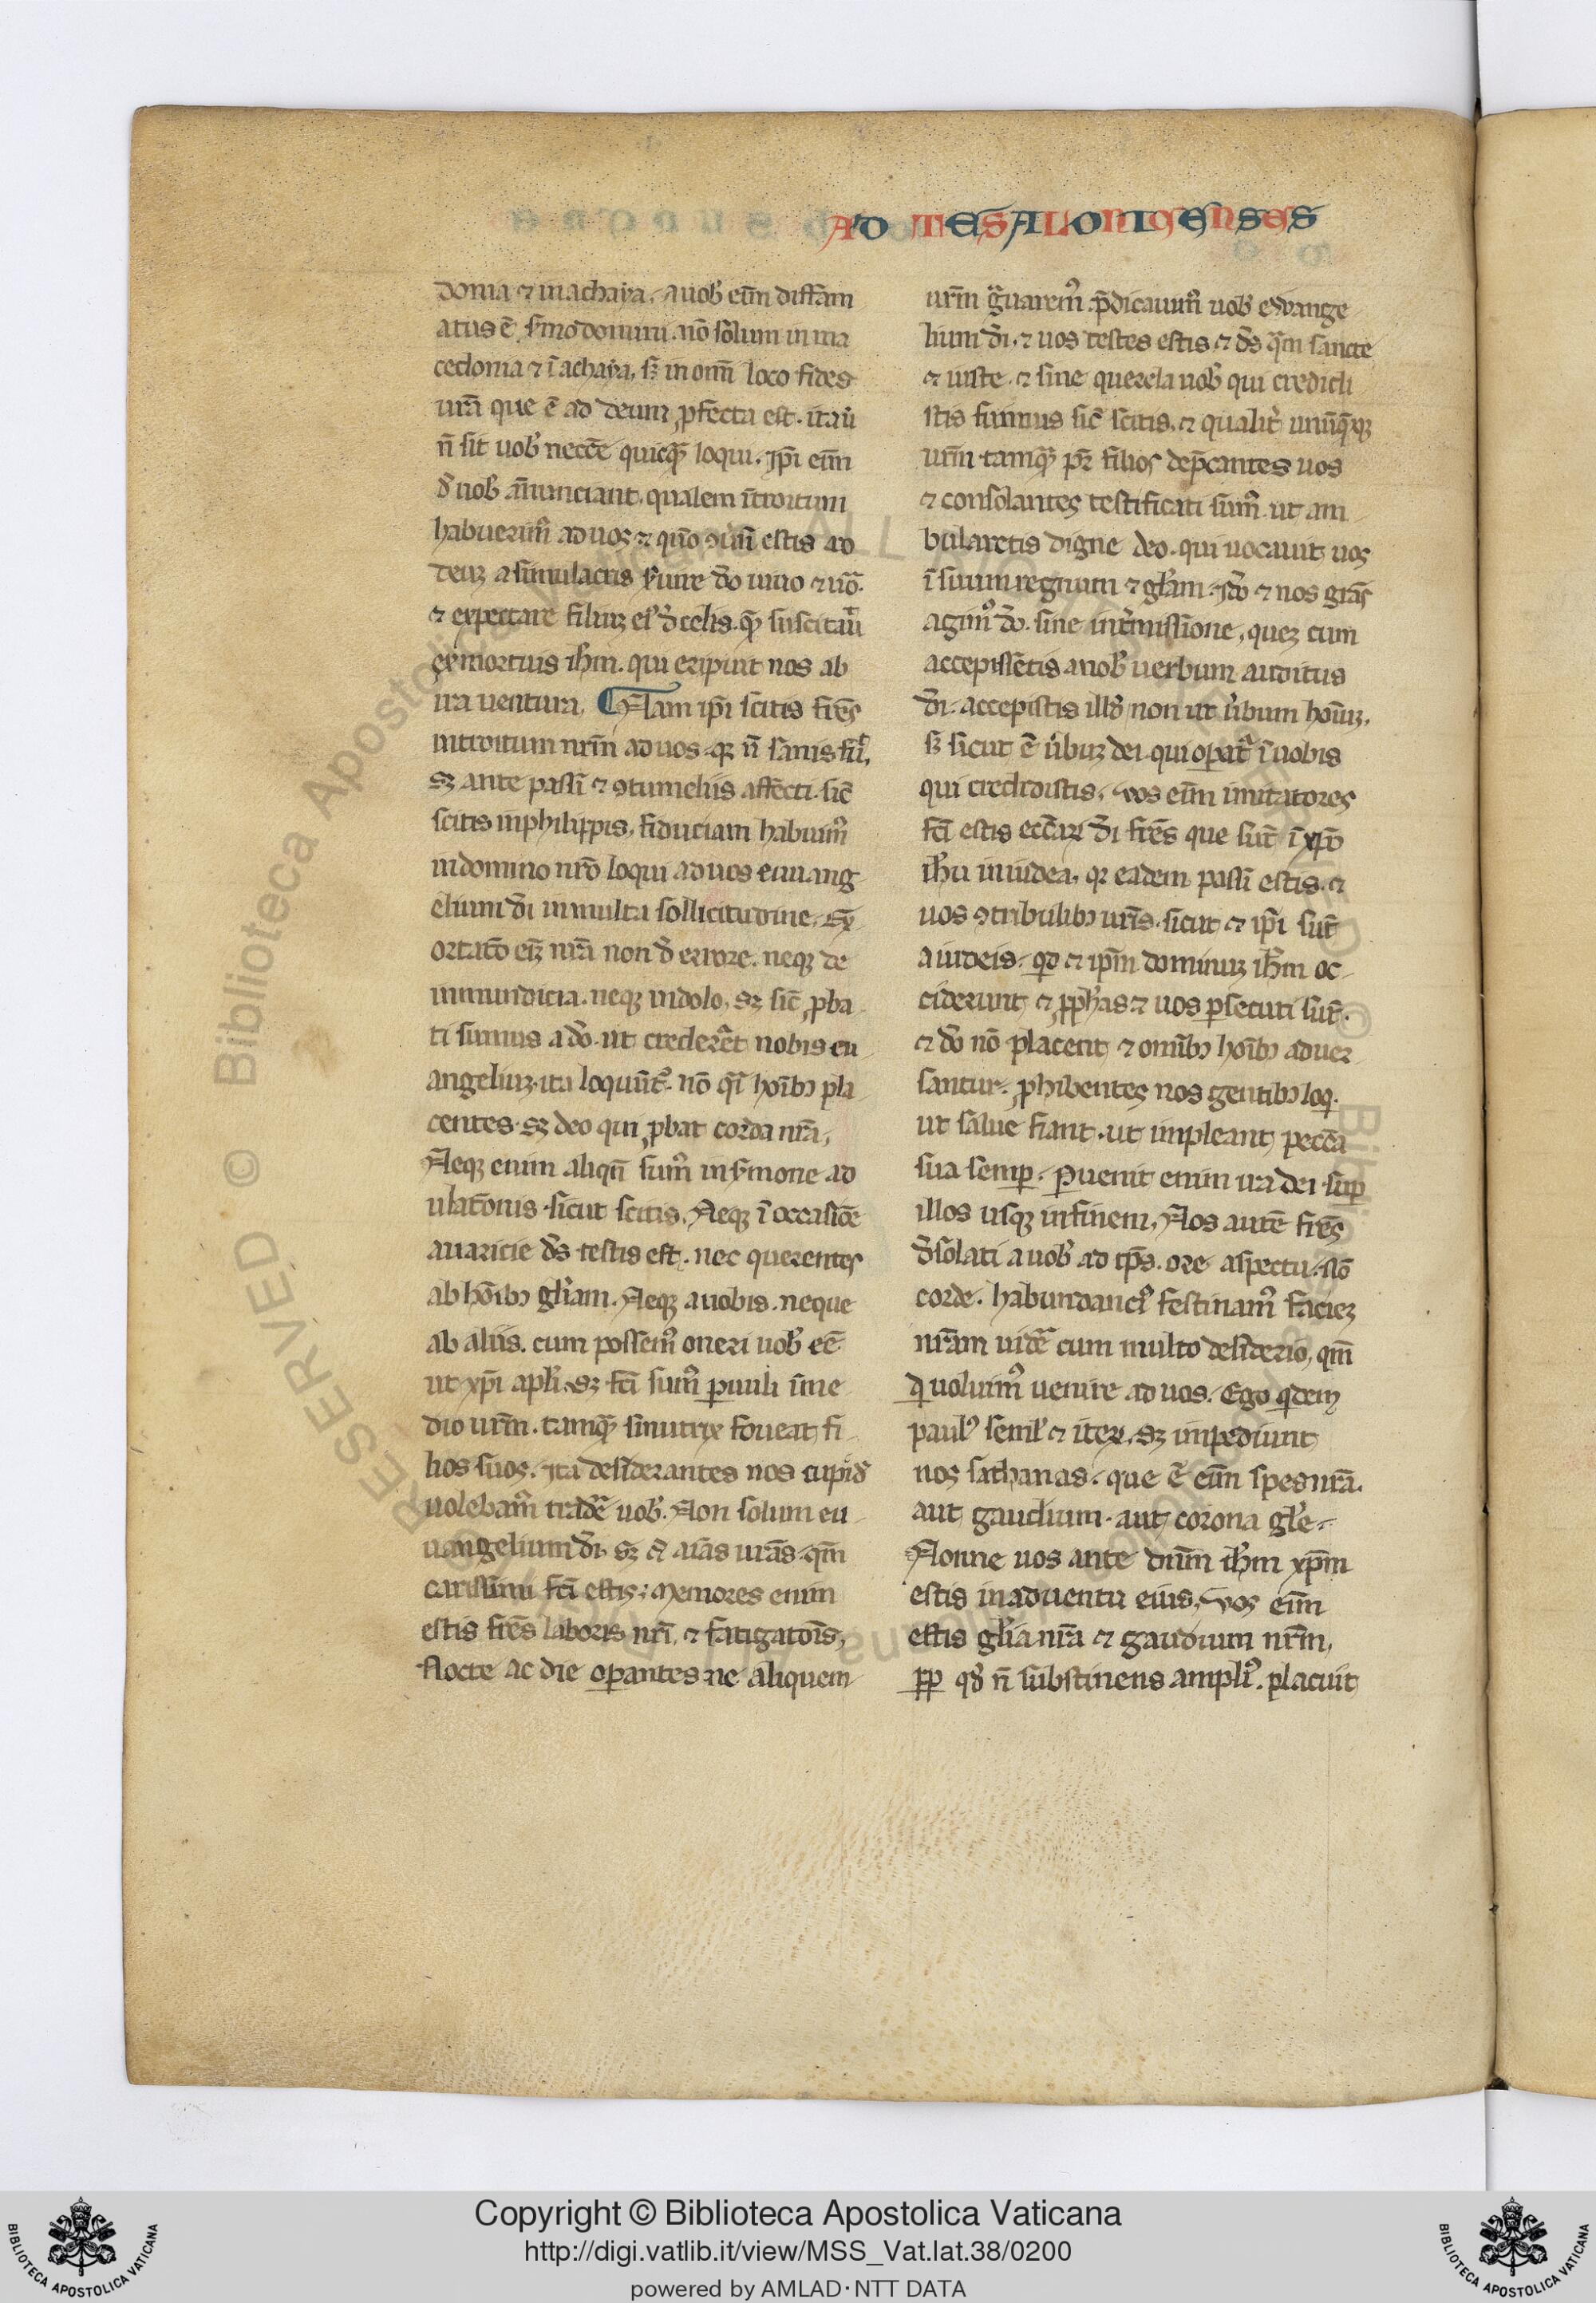 AD TESALONICENSES
donia ⁊ in achaya. a uob̾ eī̄m diffam
atus ē s̾mo domini. nō solum in ma
cedonia ⁊ ī achaya, sꝫ in om̄i loco fides
urā que ē ad deum ꝓfecta est. ita ut̾
n̄ sit uob̾ necc̄e quicqꝫ loqui. Ip̄i eīm
d̾ uob̾ ānunciant. qualem ītroitum
habuerim᷒ ad uos ⁊ quō ꝯuīsi estis ad
deuꝫ a simulacris s̾uire dō uiuo ⁊ uō.
⁊ expectare filiuꝫ ei᷒ d̾ celis. quē suscitauit
ex mortuis ih̄m. qui eripuit nos ab
ira uentura. ¶ Nam ip̄i scitis fr̄es
introitum nr̄m ad uos. qꝛ n̄ īanis fu͛.
sꝫ ante passi ⁊ ꝯtumeliis affecti. sic̄
scitis in philippis, fiduciam habuim᷒
in domino nr̄o loqui ad uos euuang
elium dī in multa sollicitudine. Ex
ortatō eī nr̄a non d̾ errore. neqꝫ de
inmundicia. neqꝫ in dolo, sꝫ sic̄ ꝓba
ti sumus a dō. ut credere͛t nobis eu
angeliuꝫ. ita loquim᷒. nō q̄i hoībꝫ pla
centes. sꝫ deo qui ꝓbat corda nr̄a,
Neqꝫ enim aliqn̄ fuim᷒ in s̾mone ad
ulatōnis sicut scitis. Neqꝫ ī occasiōe
auaricie ds̄ testis est. nec querentes
ab hōībꝫ gl̄iam. Neqꝫ a uobis. neque
ab aliis. cum possem᷒ oneri uob̾ eē
ut xp̄i apl̄i. sꝫ fc̄i sum᷒ ꝑuuli ī me
dio ur̄m. tamqꝫ si nutrix foueat fi
lios suos. Ita desiderantes nos cupid̾
uolebam᷒ trade͛ uob̾. Non solum eu
uangelium dī. sꝫ ⁊ aīas urās. qm̄
carissimi fc̄i estis; Memores enim
estis fr̄es laboris nr̄i, ⁊ fatigatōis,
Nocte ac die oꝑantes ne aliquem
ur̄m g̾uarem᷒. p̄dicauim᷒ uob̾ eduange
lium dī. ⁊ uos testes estis ⁊ ds̄ q̄m sancte
⁊ iuste. ⁊ sine querela uob̾ qui credidi
stis fuimus sic̄ scitis. ⁊ qualit̾ unūqēqꝫ
ur̄m. tamqꝫ pr̄ filios dep̄cantes uos
⁊ consolantes testificati sum᷒. ut am
bularetis digne deo. qui uocauit uos
ī suum regnum ⁊ gl̄am. Iō ⁊ nos grās
agim᷒ dō. sine int̾missione, queꝫ cum
accepissētis a nob̾ uerbum auditus
dī. accepistis illd̾ non ut u̾bum hoīuꝫ.
sꝫ sicut ē u̾buꝫ dei. qui oꝑat͛ ī uobis
qui credidistis. Uos eīm imitatores
fc̄i estis ecc̄aꝝ dī fr̄es que sūt ī xp̄o
ih̄u in iudea. qꝛ eadem passi estis. ⁊
uos ꝯtribulibꝫ ur̄is. sicut ⁊ ip̄i sūt
a iudeis. qd̾ ⁊ ip̄m dominuꝫ ih̄m oc
ciderunt ⁊ ꝓph̄as ⁊ uos ꝑsecuti sūt.
⁊ dō nō placent ⁊ om̄ībꝫ hoībꝫ aduer
santur. ꝓhibentes nos gentibꝫ loq̄.
ut salue fiant. ut impleant pecc̄a
sua semꝑ. Puenit enim ira dei suꝑ
illos usqꝫ in finem. Nos autē fr̄es
d̾solati a uob̾ ad tp̄s. ore aspectu. nō
corde. habundanci᷒ festinam᷒ facieꝫ
ur̄am uide͛ cum multo desiderio, qm̄
q̄ uoluim᷒ uenire ad uos. Ego qdem
paul᷒ semel ⁊ iteꝝ. sꝫ impediuit
nos sathanas. que ē eīm spes nr̄a.
aut gaudium. aut corona gl̄e.
Nonne uos ante dnm̄ ih̄m xp̄m
estis in aduentu eius, Uos eīm
estis gl̄ia nr̄a ⁊ gaudium nr̄m,
ꝓp qd̾ n̄ substinens ampli᷒. placuit
Copyright © Biblioteca Apostolica Vaticana
http://digi.vatlib.it/view/MSS_Vat.lat.38/0200
powered by AMLAD·NTT DATA
BIBLIOTECA APOSTOLICA VATICANA
BIBLIOTECA APOSTOLICA VATICANA